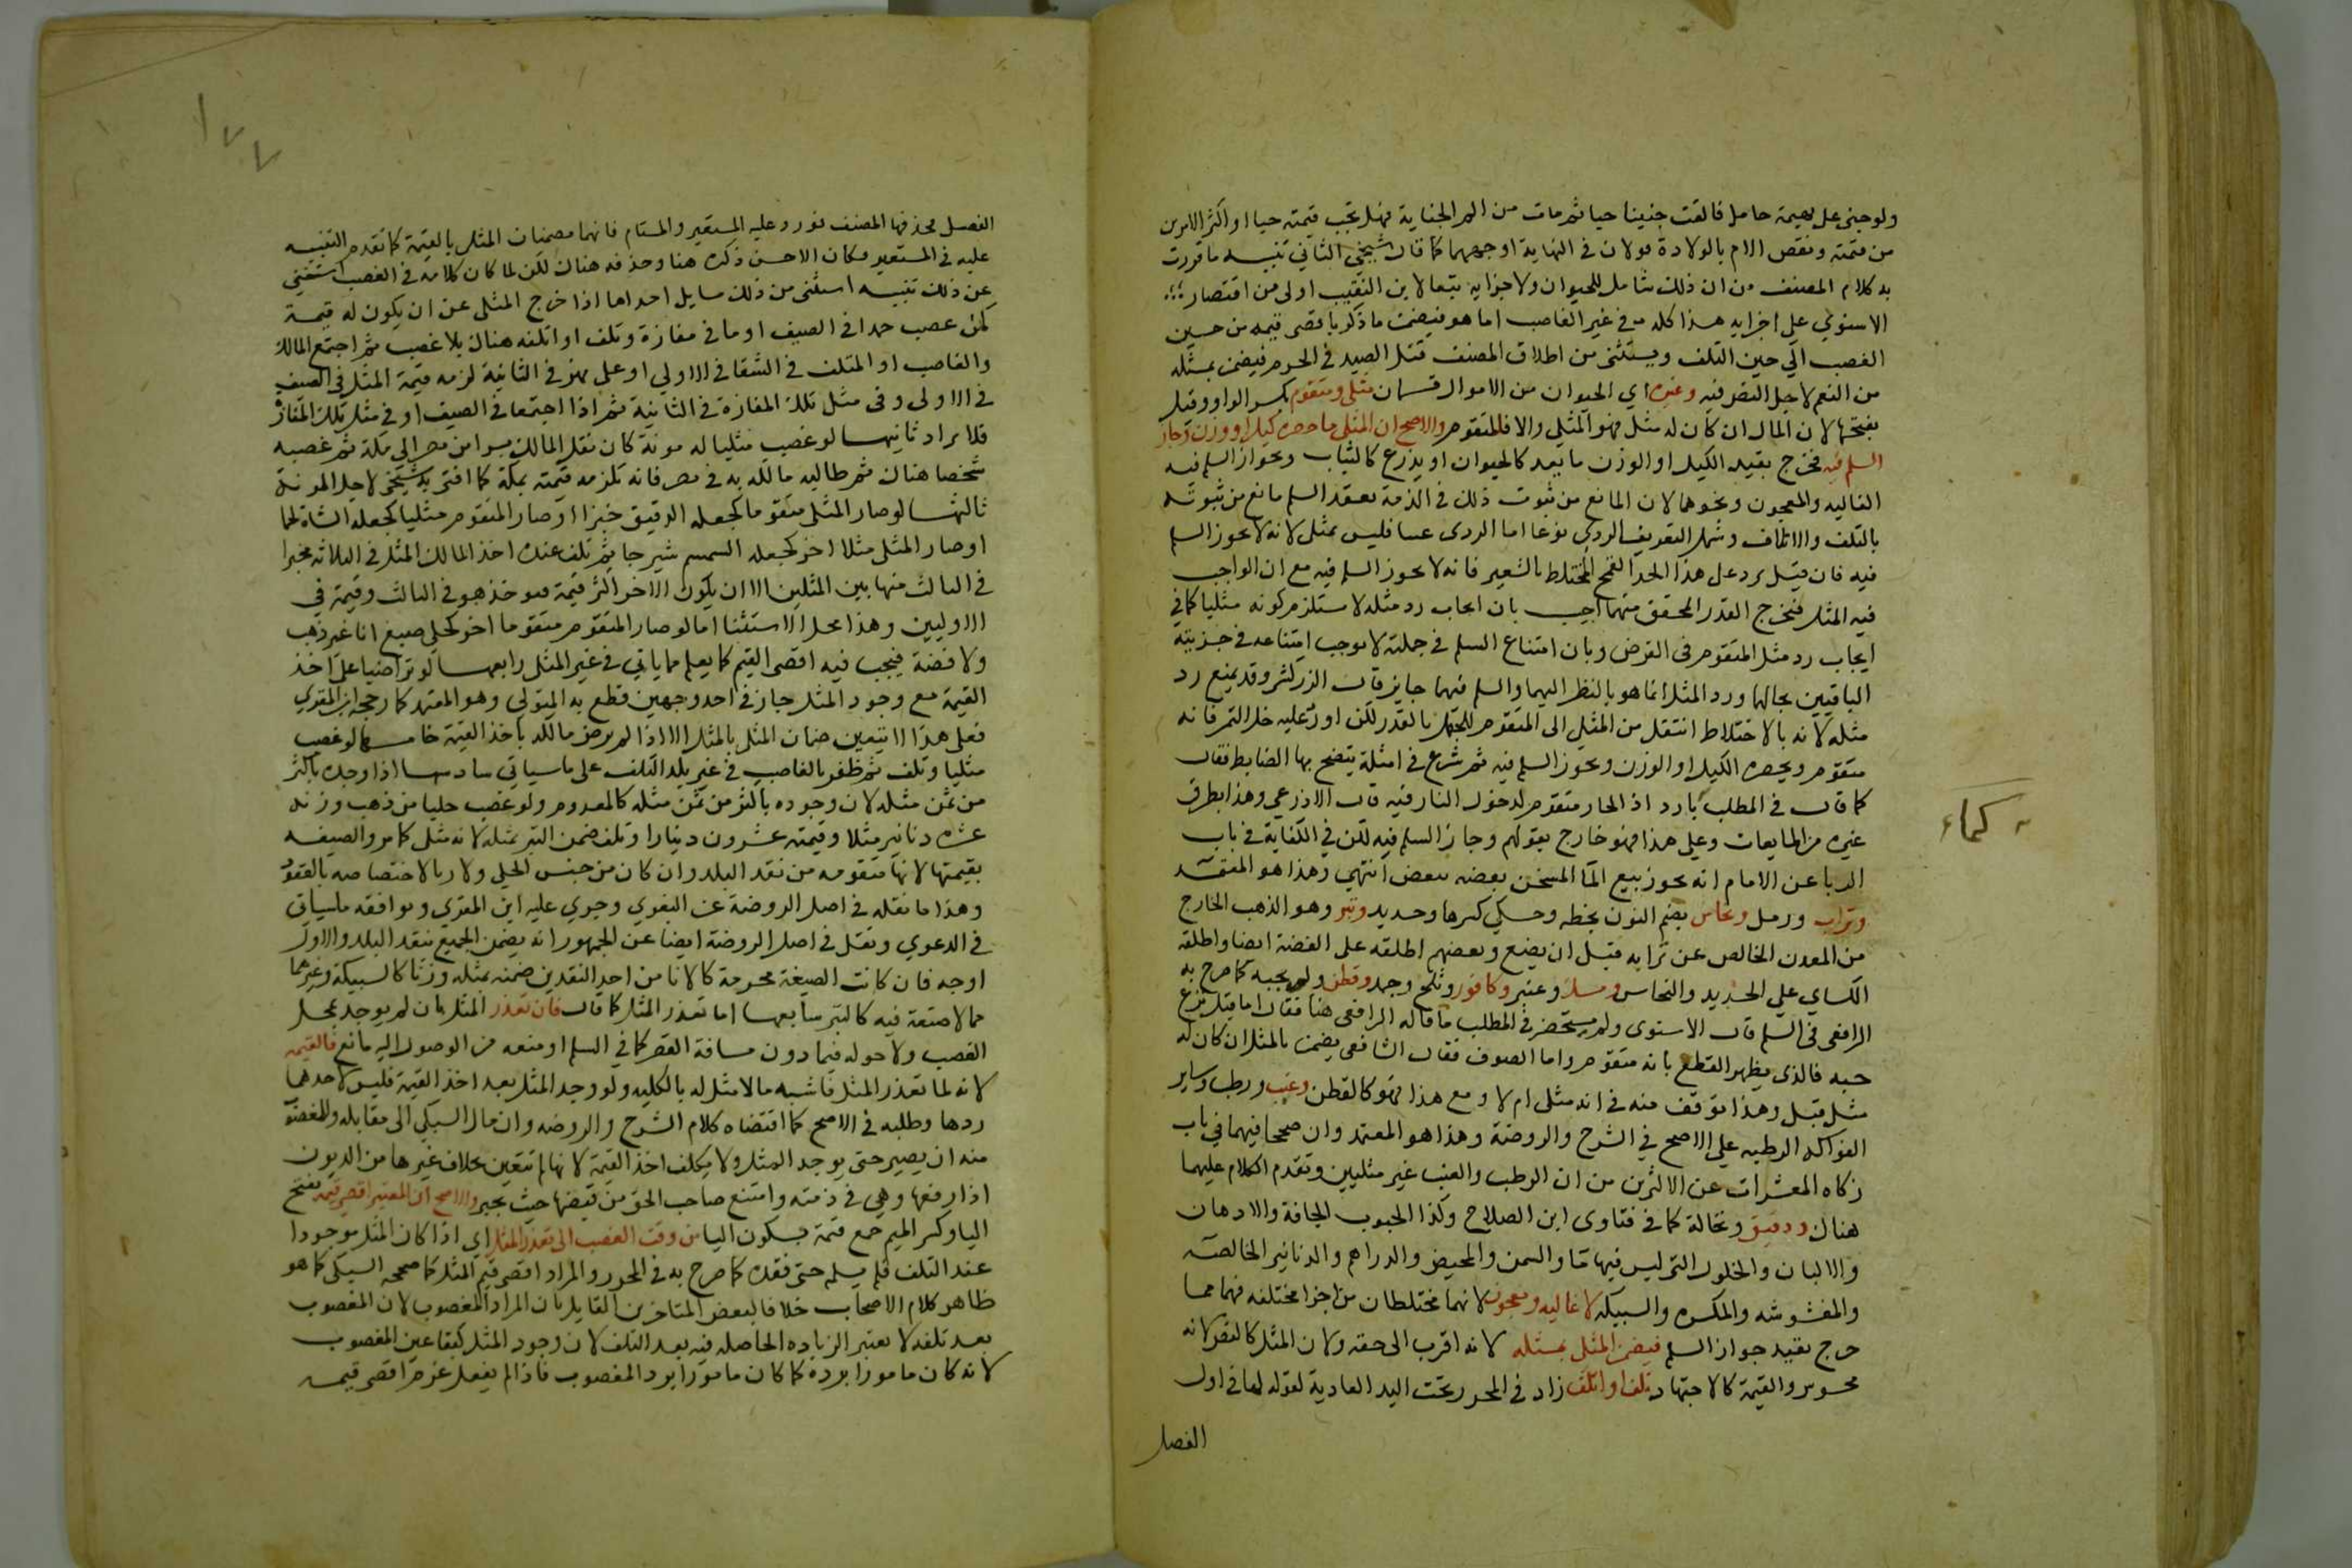 ولو جنى على بهيمة حامل فالقت جنينا حيا ثم مات من الم الجناية فهل تجب قيمته حيا او اكثر الامرين
من قيمته ونقص الام بالولادة قولان في النهاية اوجههما كما قال شيخي الثاني تنبيه ما قررت
به كلام المصنف من ان ذلك شامل للحيوان ولاجزايه تبعا لابن النقيب اولى من اقتصار
الاسنوي على اجزايه هذا كله في غير الغاصب اما هو فيضمن ما ذكر باقصى قيمه من حين
الغصب الى حين التلف ويستثنى من اطلاق المصنف قتل الصيد في الحرم فيضمن بمثله
من النعم لاجل النص فيه وغيره اي الحيوان من الاموال قسمان مثلى ومتقوم بكسر الواو وقيل
بفتحها لان المال ان كان له مثل فهو المثلي والا فالمتقوم والاصح ان المثلى ما حصره كيل او وزن وجاز
السلم فيه فخرج بقيد الكيل او الوزن ما يعد كالحيوان او يذرع كالثياب وبجواز السلم فيه
الغاليه والمعجون ونحوهما لان المانع من ثبوت ذلك في الذمة بعقد السلم مانع من ثبوته
بالتلف والاتلاف وشمل التعريف الردي نوعا اما الردى عيبا فليس بمثلى لانه لا يجوز السلم
فيه فان قيل يرد على هذا الحد القمح المختلط بالشعير فانه لا يجوز السلم فيه مع ان الواجب
فيه المثل فيخرج القدر المحقق منهما اجيب بان ايجاب رد مثله لا يستلزم كونه مثليا كما في
ايجاب رد مثل المتقوم في القرض وبان امتناع السلم في جملته لا يوجب امتناعه في جزييه
الباقيين بحالهما ورد المثل انما هو بالنظر اليهما والسلم فيهما جايز قال الزركشى وقد يمنع رد
مثله لانه بالاختلاط انتقل من المثلي الى المتقوم للجهل بالقدر لكن اورد عليه خل التمر فانه
متقوم ويحصره الكيل او الوزن ويجوز السلم فيه ثم شرع في امثلة يتضح بها الضابط فقال
كما قال في المطلب بارد اذ الحار متقوم لدخول النار فيه قال الاذرعي وهذا يطرق
غيره من المايعات وعلى هذا فهو خارج بقولهم وجاز السلم فيه لكن في الكفاية في باب
الربا عن الامام انه يجوز بيع الما المسخن بعضه ببعض انتهى وهذا هو المعتمد
وتراب ورمل ونحاس بضم النون بخطه وحكي كسرها وحديد وتبر وهو الذهب الخارج
من المعدن الخالص عن ترابه قبل ان يضع وبعضهم اطلقه على الفضة ايضا واطلقه
الكساي على الحديد والنحاس ومسك وعنبر وكافور وثلج وجمد وقطن ولو بحبه كما صرح به
الرافعى في السلم قال الاسنوى ولم يستحضر في المطلب ما قاله الرافعى هنا فقال اما قبل نزع
حبه فالذى يظهر القطع بانه متقوم واما الصوف فقال الشافعى يضمن بالمثل ان كان له
مثل قيل وهذا توقف منه في انه مثلى ام لا ومع هذا فهو كالقطن وعنب ورطب وساير
الفواكه الرطبه على الاصح في الشرح والروضة وهذا هو المعتمد وان صححا فيهما في باب
زكاه المعشرات عن الاكثرين من ان الرطب والعنب غير مثليين وتقدم الكلام عليهما
هناك ودقيق ونخالة كما في فتاوى ابن الصلاح وكذا الحبوب الجافة والادهان
والالبان والخلول التى ليس فيها ما والسمن والمخيض والدراهم والدنانير الخالصه
والمغشوشه والمكسره والسبيكه لا غاليه ومعجون لانهما مختلطان من اجزا مختلفه فهما مما
خرج بقيد جواز السلم فيضمن المثلى بمثله لانه اقرب الى حقه ولان المثل كالنص لانه
محسوس والقيمة كالاجتهاد تلف او اتلف زاد في المحرر تحت اليد العادية لقوله لها في اول
الفصل
كماء
١٧٧
الفصل فحذفها المصنف فورد عليه المستعير والمستام فانهما يضمنان المثلى بالقيمة كما تقدم التنبيه
عليه في المستعير فكان الاحسن ذكره هنا وحذفه هناك لكن لما كان كلامه في الغصب استغنى
عن ذلك تنبيه استثنى من ذلك مسايل احداها اذا خرج المثلى عن ان يكون له قيمة
كمن غصب جمدا في الصيف او ما في مفازة وتلف او اتلفه هناك بلا غصب ثم اجتمع المالك
والغاصب او المتلف في الشتا في الاولي او على نهر في الثانية لزمه قيمة المثل في الصيف
في الاولى وفى مثل تلك المفازة في الثانية ثم اذا اجتمعا في الصيف او في مثل تلك المفازة
فلا تراد ثانيهما لو غصب مثليا له مونة كان نقل المالك برا من مصر الى مكة ثم غصبه
شخص هناك ثم طالبه مالكه به في مصر فانه تلزمه قيمته بمكة كما افتى به شيخى لاجل المونة
ثالثها لو صار المثلى متقوما كجعله الدقيق خبزا او صار المتقوم مثليا كجعله الشاة لحما
او صار المثلى مثليا اخر كجعله السمسم شيرجا ثم تلف عنده اخذ المالك المثل في الثلاثه مخيرا
في الثالث منها بين المثلين الا ان يكون الاخر اكثر قيمة فيوخذ هو في الثالث وقيمة في
الاوليين وهذا محل الاستثنا اما لو صار المتقوم متقوما اخر كحلى صيغ انا غير ذهب
ولا فضة فيجب فيه اقصى القيم كما يعلم مما ياتي في غير المثلى رابعها لو تراضيا على اخذ
القيمة مع وجود المثل جاز في احد وجهين قطع به المتولي وهو المعتمد كما رجحه ابن المقري
فعلى هذا لا يتعين ضمان المثلى بالمثل الا اذا لم يرض مالكه باخذ القيمة خامسها لو غصب
مثليا وتلف ثم ظفر بالغاصب في غير بلد التلف على ما سياتي سادسها اذا وجده باكثر
من ثمن مثله لان وجوده باكثر من ثمن مثله كالمعدوم ولو غصب حليا من ذهب وزنه
عشرة دنانير مثلا وقيمته عشرون دينارا وتلف ضمن التبر بمثله لانه مثلى كما مر والصيغه
بقيمتها لانها متقومه من نقد البلد وان كان من جنس الحلي ولا ربا لاختصاصه بالعقود
وهذا ما نقله في اصل الروضة عن البغوي وجري عليه ابن المقري ويوافقه ما سياتى
في الدعوي ونقل في اصل الروضة ايضا عن الجمهور انه يضمن الجميع بنقد البلد والاول
اوجه فان كانت الصيغة محرمة كالانا من احد النقدين ضمنه بمثله وزنا كالسبيكة وغيرهما
مما لا صنعة فيه كالتبر سابعها اما تعذر المثل كما قال فان تعذر المثل بان لم يوجد بمحل
الغصب ولا حوله فيما دون مسافة القصر كما في السلم او منعه من الوصول اليه مانع فالقيمه
لانه لما تعذر المثل فاشبه ما لا مثل له بالكليه ولو وجد المثل بعد اخذ القيمة فليس لاحدهما
ردها وطلبه في الاصح كما اقتضاه كلام الشرح والروضه وان مال السبكي الى مقابله وللمغصوب
منه ان يصبر حتى يوجد المثل ولا يكلف اخذ القيمة لانها لم تتعين بخلاف غيرها من الديون
اذا رفعها وهي في ذمته وامتنع صاحب الحق من قبضها حيث يجبر والاصح ان المعتبر اقصى قيمه بفتح
اليا وكسر الميم جمع قيمة بسكون اليا من وقت الغصب الى تعذر المثل اي اذا كان المثل موجودا
عند التلف فلم يسلمه حتى فقده كما صرح به في المحرر والمراد اقصى قيم المثل كما صححه السبكى كما هو
ظاهر كلام الاصحاب خلافا لبعض المتاخرين القايل بان المراد المغصوب لان المغصوب
بعد تلفه لا تعتبر الزياده الحاصله فيه بعد التلف لان وجود المثل كبقا عين المغصوب
لانه كان مامورا برده كما كان مامورا برد المغصوب فاذا لم يفعل غرم اقصى قيمه